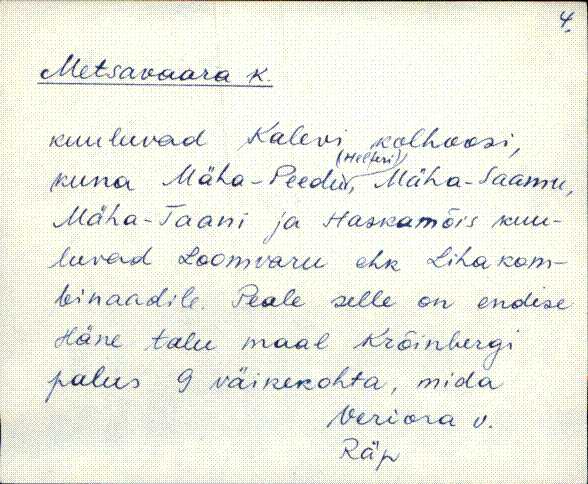 4.
Metsavaara k.
kuuluvad Kalevi kolhoosi,
(Helleri)
kuna Mäha-Peedu, Mäha-Saamu,
Mäha-Taani ja Haskamõis kuu-
luvad Loomvaru ehk Lihakom-
binaadile. Peale selle on endise
Häne talu maal Krõinbergi
palus 9 väikekohta, mida
Veriora v.
Räp